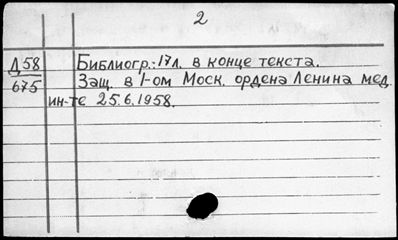 2
Д58 Библиогр.: 17л. в конце текста.
675 Защ. в 1-ом Моск. ордена Ленина мед.
ин-те 25.6.1958.